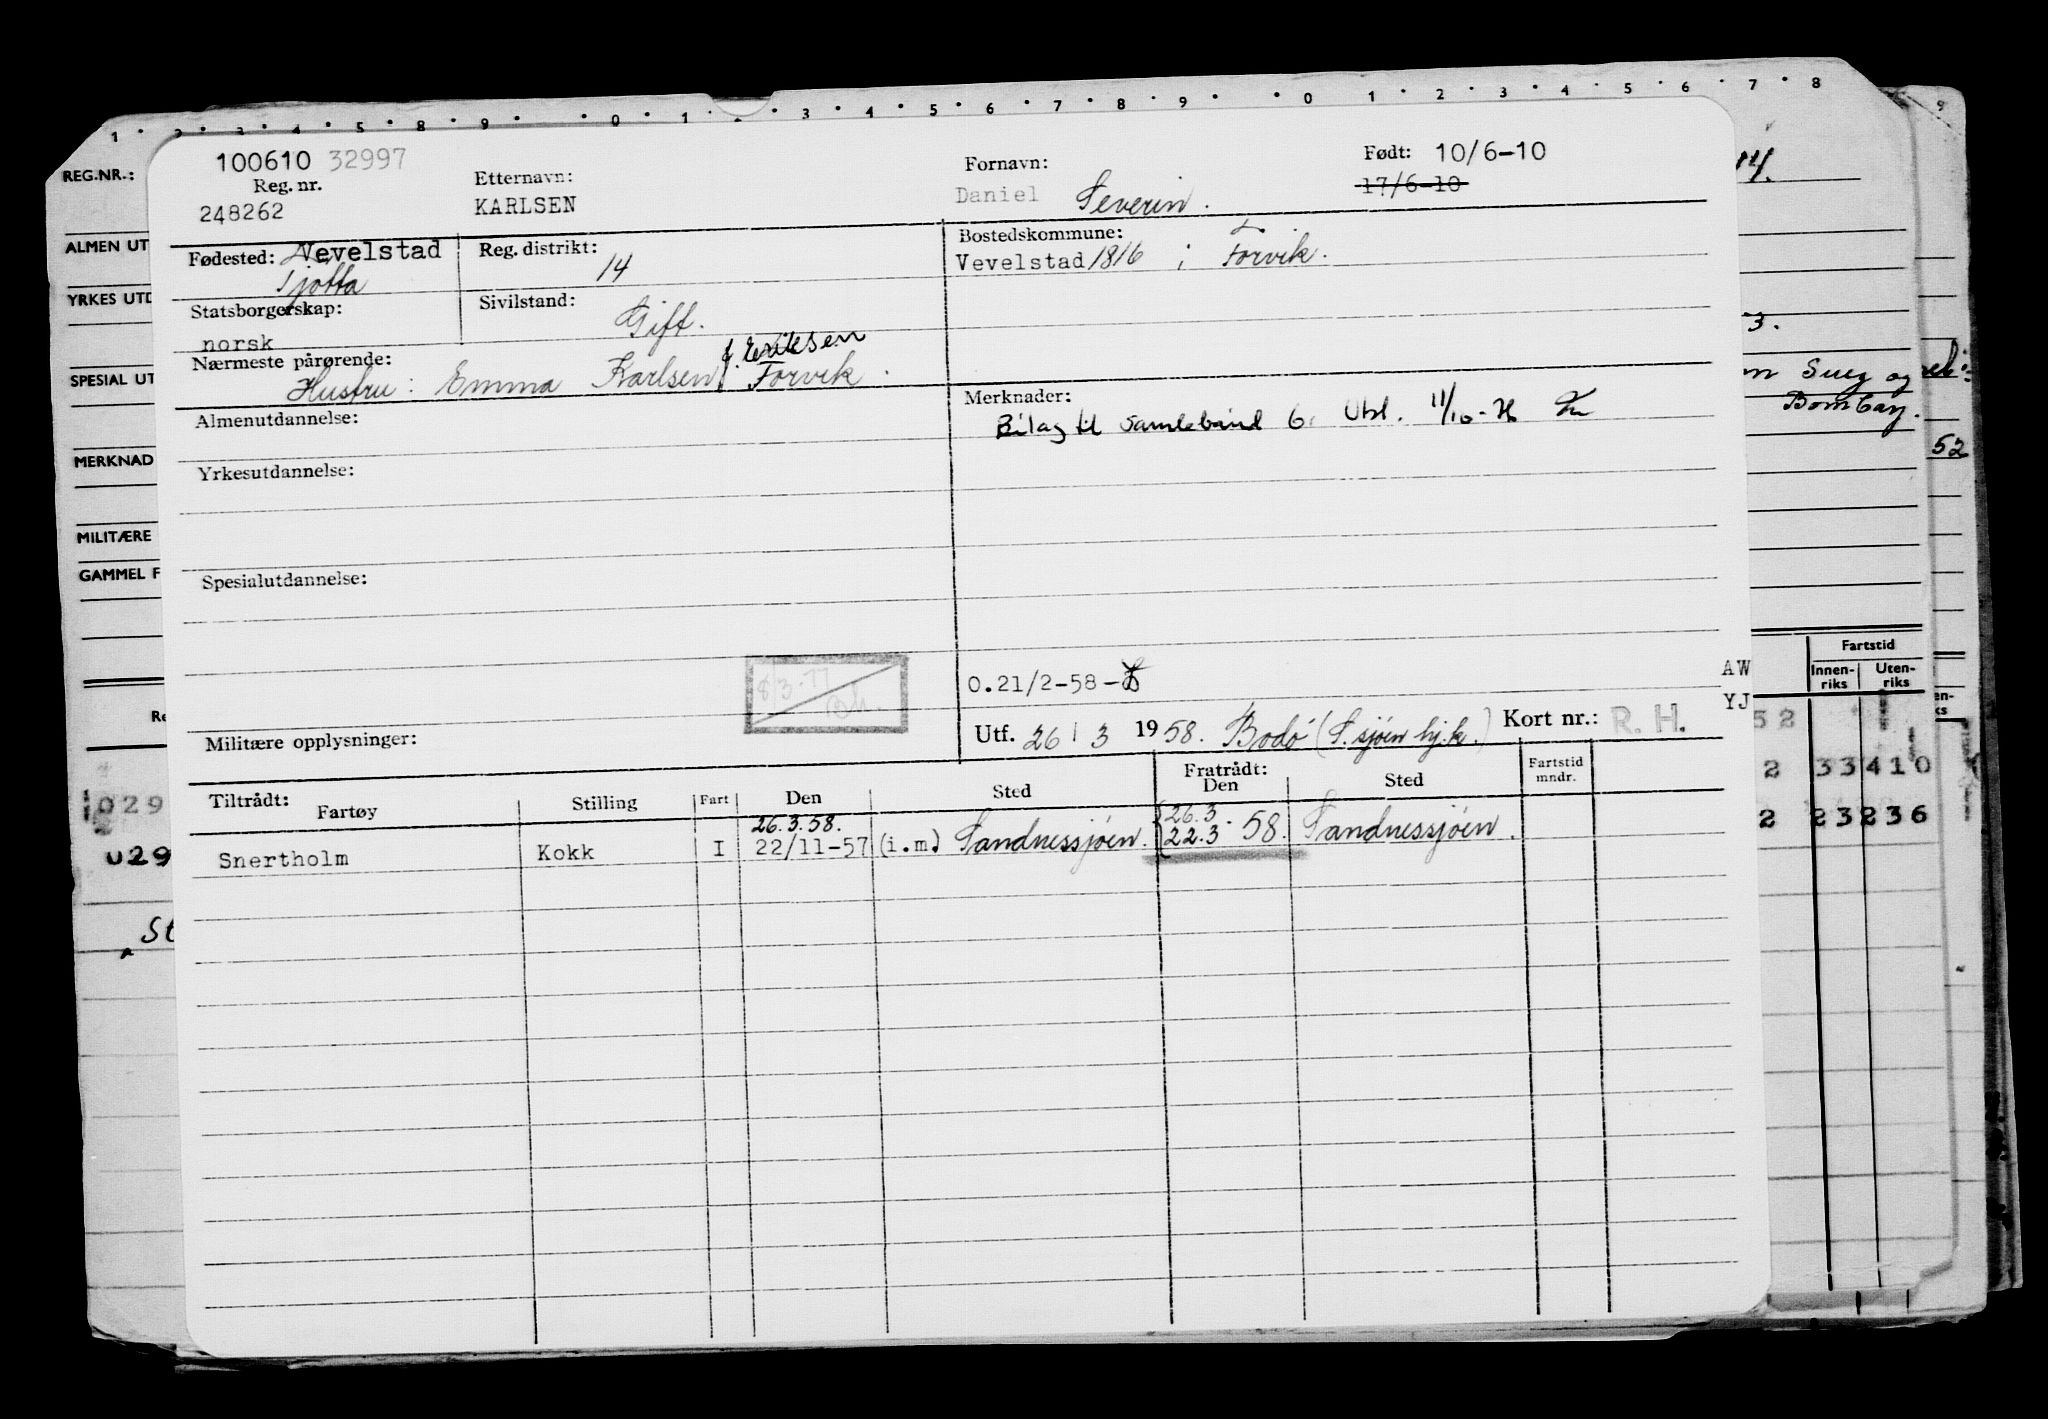 1 2 3 4 5 8 9 0 1 3 4 5 6 7 8 9 0 1 2 3 4 5 6 7 8 9
REG.NR.:
100610 32997
Reg. nr.
248262
Etternavn:
KARLSEN
Fornavn:
Daniel Severin.
Født: 10/6-10
17/6-10
Fødested: Vevelstad
Tjøtta
Reg. distrikt:
14
Bostedskommune:
Vevelstad 1816 i Forvik.
Statsborgerskap:
norsk
Sivilstand:
Gift.
Nærmeste pårørende:
f. Eriksen
Hustru: Emma Karlsen, Forvik.
Almenutdannelse:
Merknader:
Bilag til samlebind 6. Utst. 11/10-76
Yrkesutdannelse:
Spesialutdannelse:
8/3-77
O.21/2-58-
AW
YJ
Militære opplysninger:
Utf. 26/3 1958. Bodø (S.sjøen hj.k.) Kort nr.: R.H.
Tiltrådt: Fartøy
Stilling
Fart
Den
Sted
Fratrådt:
Den
Sted
Fartstid
mndr.
26.3.58. 26.3
Snertholm Kokk I 22/11-57 (i.m.) Sandnessjøen. 22.3 - 58. Sandnessjøen.
ALMEN UT
YRKES UTD
SPESIAL UT
MERKNAD
MILITÆRE
GAMMEL F
Re
029
029
St
3.
en Suez og
Bombay.
52
Fartstid
Innen-
riks
Uten-
riks
en-
ks
52
2 33410
2 23236